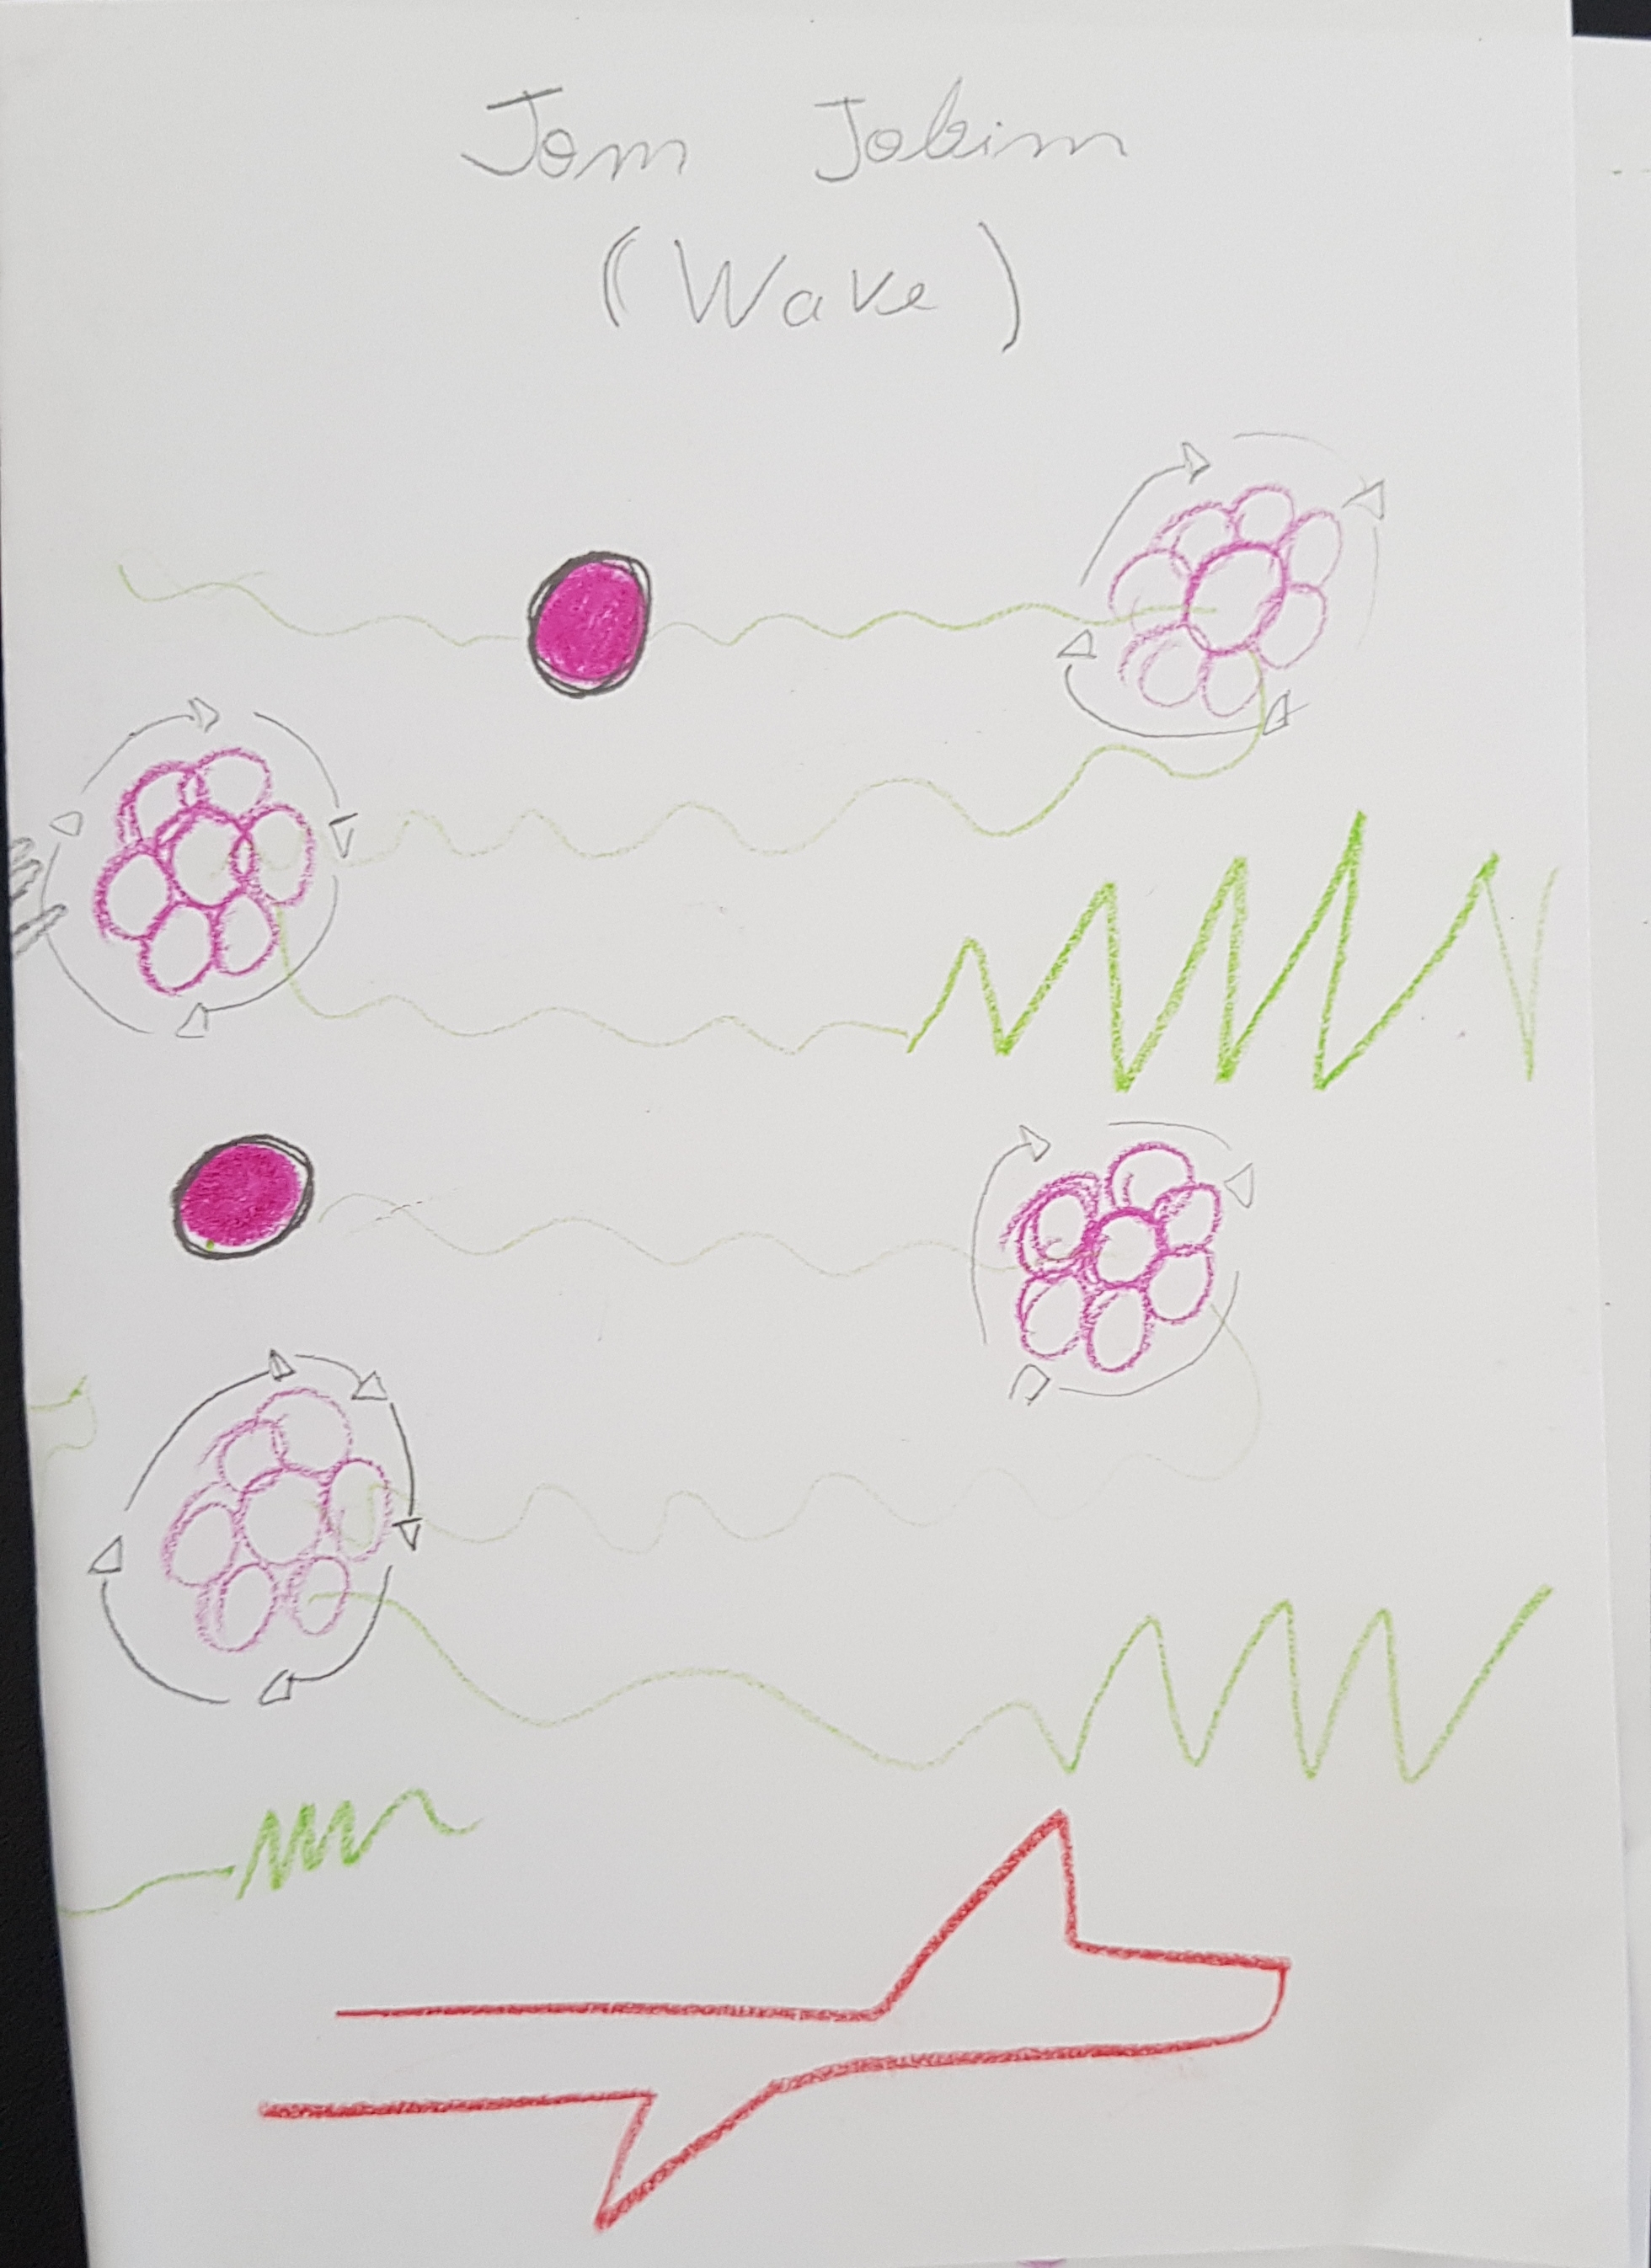 Tom Jobim
(Wave)